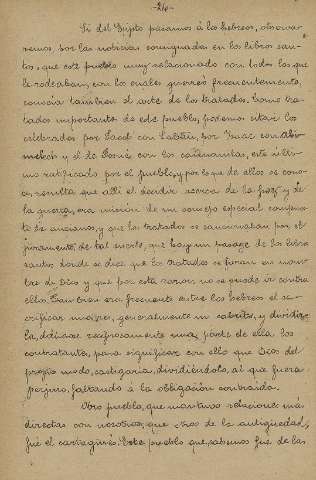 -24-
Si del Egipto pasamos á los hebreos, observa-
remos por las noticias consignadas en los libros san-
tos, que este pueblo muy relacionado con todos los que
le rodeaban, con los cuales guerreó frecuentemente,
conocía tambien el arte de los tratados. Como tra-
tados importantes de este pueblo, podemos citar los
celebrados por Jacob con Labán, por Isaac con Abi-
melech y el de Josué con los cananeitas, este últi-
mo ratificado por el pueblo, y por lo que de ellos se cono-
ce, resulta que allí el decidir acerca de la paz y de
la guerra, era misión de un consejo especial compues-
to de ancianos, y que los tratados se sancionaban por el
juramento, de tal suerte, que hay un pasage de los libros
santos donde se dice que los tratados se juran en nom-
bre de Dios y que por esta razon no se puede ir contra
ellos. Tambien era frecuente entre los hebreos el sa-
crificar una res, generalmente un cabrito, y dividir-
la, dándose recíprocamente una parte de ella los
contratantes, para significar con ello que Dios del
propio modo, castigaria, dividiéndolo, al que fuera
perjuro, faltando á la obligación contraida.
Otro pueblo, que mantuvo relaciones más
directas con nosotros, que otros de la antigüedad,
fué el cartaginés. Este pueblo que, sabemos fué de las